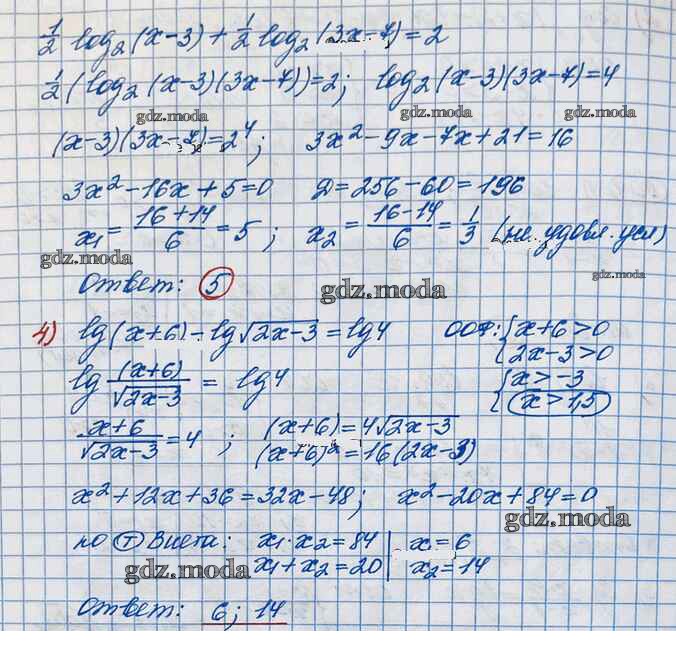 1/2 log₂(x-3) + 1/2 log₂(3x-7) = 2
1/2(log₂(x-3)(3x-7)) = 2; log₂(x-3)(3x-7) = 4
gdz.moda gdz.moda gdz.moda
(x-3)(3x-7) = 2⁴; 3x² - 9x - 7x + 21 = 16
3x² - 16x + 5 = 0 D = 256 - 60 = 196
x₁ = (16+14)/6 = 5; x₂ = (16-14)/6 = 1/3 (не удовл. усл)
gdz.moda gdz.moda
Ответ: 5 gdz.moda
4) lg(x+6) - lg√(2x-3) = lg4 ООФ: { x+6 > 0
{ 2x-3 > 0
lg (x+6)/√(2x-3) = lg4 { x > -3
{ x > 1,5
(x+6)/√(2x-3) = 4; (x+6) = 4√(2x-3)
(x+6)² = 16(2x-3)
x² + 12x + 36 = 32x - 48; x² - 20x + 84 = 0
gdz.moda
по Т Виета: x₁·x₂ = 84 | x₁ = 6
gdz.moda x₁+x₂ = 20 | x₂ = 14
Ответ: 6; 14
gdz.moda